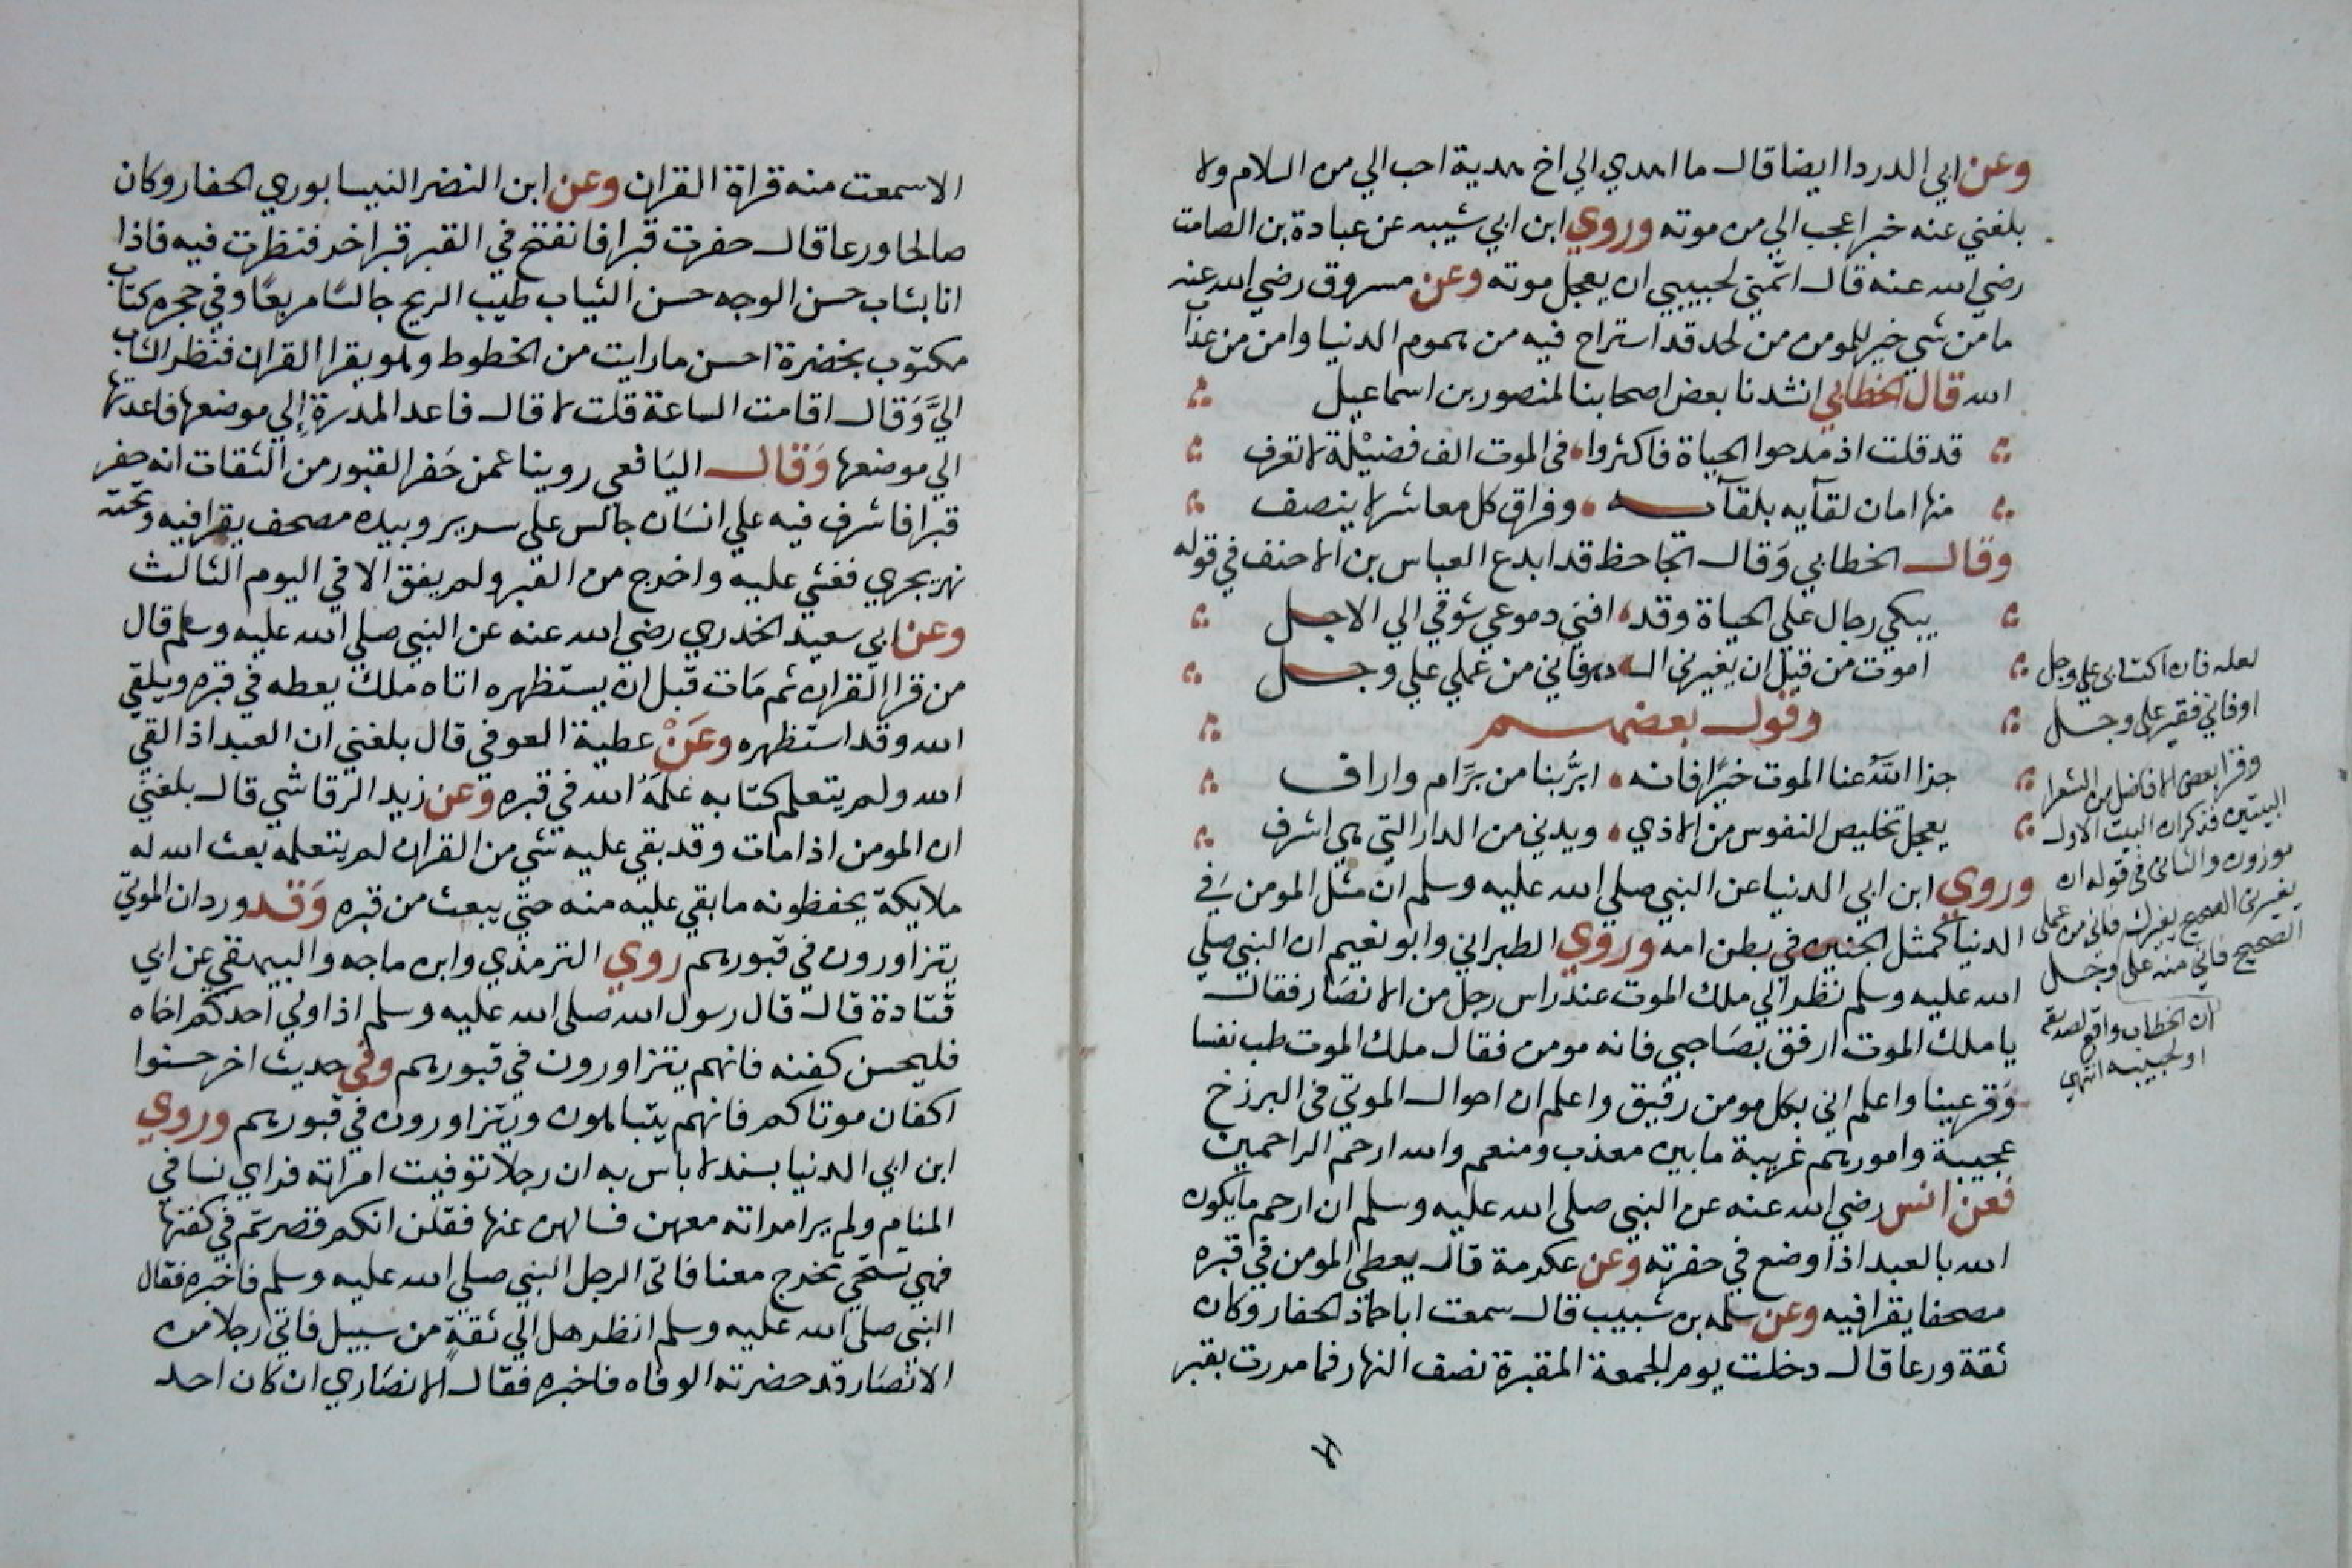 وعن ابي الدردا ايضا قال ما اهدي الي اخ هدية احب الي من السلام ولا
بلغني عنه خبرا عجب الي من موته وروي ابن ابي شيبه عن عبادة بن الصامت
رضي الله عنه قال اتمني لحبيبي ان يعجل موته وعن مسروق رضي الله عنه
ما من شي خير للمومن من لحد قد استراح فيه من هموم الدنيا وامن من عذاب
الله قال الخطابي انشدنا بعض اصحابنا لمنصور بن اسماعيل
قد قلت اذ مدحوا الحياة فاكثروا في الموت الف فضيلة لا تعرف
منها امان لقآيه بلقآيه وفراق كل معاشر لا ينصف
وقال الخطابي وقال الجاحظ قد ابدع العباس بن الاحنف في قوله
يبكي رجال علي الحياة وقد افني دموعي شوقي الي الاجل
اموت من قبل ان يغيرني الدهر فاني من عملي علي وجل
وقول بعضهم
جزا الله عنا الموت خيرا فانه ابر بنا من بر ام واراف
يعجل تخليص النفوس من الاذي ويدني من الدار التي هي اشرف
وروي ابن ابي الدنيا عن النبي صلي الله عليه وسلم ان مثل المومن في
الدنيا كمثل الجنين في بطن امه وروي الطبراني وابو نعيم ان النبي صلي
الله عليه وسلم نظر الي ملك الموت عند راس رجل من الانصار فقال
يا ملك الموت ارفق بصاحبي فانه مومن فقال ملك الموت طب نفسا
وقر عينا واعلم اني بكل مومن رفيق واعلم ان احوال الموتي في البرزخ
عجيبة وامورهم غريبة ما بين معذب ومنعم والله ارحم الراحمين
فعن انس رضي الله عنه عن النبي صلي الله عليه وسلم ان ارحم ما يكون
الله بالعبد اذا وضع في حفرته وعن عكرمة قال يعطي المومن في قبره
مصحفا يقرا فيه وعن سلمه بن شبيب قال سمعت ابا حماد الحفار وكان
ثقة ورعا قال دخلت يوم الجمعة المقبرة نصف النهار فما مررت بقبر
لعله فان اكتئابي علي وجل
او فاني فقير علي وجل
وقرا بعض الافاضل من الشعرا
البيتين فذكر ان البيت الاول
موزون والثاني في قوله ان
يغيرني الصحيح يغيرك فاني من عملي
الصحيح فاني منه علي وجل
ان الخطاب واقع لصديقه
او لحبيبه انتهي
الا سمعت منه قراة القران وعن ابن النضر النيسابوري الحفار وكان
صالحا ورعا قال حفرت قبرا فانفتح في القبر قبرا خر فنظرت فيه فاذا
انا بشاب حسن الوجه حسن الثياب طيب الريح جالسا مربعا وفي حجره كتاب
مكتوب بخضرة احسن ما رايت من الخطوط وهو يقرا القران فنظر الشاب
الي وقال اقامت الساعة قلت لا قال فاعد المدرة الي موضعها فاعدتها
الي موضعها وقال اليافعي روينا عمن حفر القبور من الثقات انه حفر
قبرا فاشرف فيه علي انسان جالس علي سرير وبيده مصحف يقرا فيه وتحته
نهر يجري فغشي عليه واخرج من القبر ولم يفق الا في اليوم الثالث
وعن ابي سعيد الخدري رضي الله عنه عن النبي صلي الله عليه وسلم قال
من قرا القران ثم مات قبل ان يستظهره اتاه ملك يعطه في قبره ويلقي
الله وقد استظهره وعن عطية العوفي قال بلغني ان العبد اذا لقي
الله ولم يتعلم كتابه علمه الله في قبره وعن زيد الرقاشي قال بلغني
ان المومن اذا مات وقد بقي عليه شي من القران لم يتعلمه بعث الله له
ملايكة يحفظونه ما بقي عليه منه حتي يبعث من قبره وقد ورد ان الموتي
يتزاورون في قبورهم روي الترمذي وابن ماجه والبيهقي عن ابي
قتادة قال قال رسول الله صلي الله عليه وسلم اذا ولي احدكم اخاه
فليحسن كفنه فانهم يتزاورون في قبورهم وفي حديث اخر حسنوا
اكفان موتاكم فانهم يتباهون ويتزاورون في قبورهم وروي
ابن ابي الدنيا بسند لا باس به ان رجلا توفيت امراته فراي نسا في
المنام ولم ير امراته معهن فسالهن عنها فقلن انكم قصرتم في كفنها
فهي تستحي تخرج معنا فاتي الرجل النبي صلي الله عليه وسلم فاخبره فقال
النبي صلي الله عليه وسلم انظر هل الي ثقة من سبيل فاتي رجلا من
الانصار قد حضرته الوفاه فاخبره فقال الانصاري ان كان احد